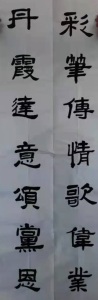 彩筆傳情歌偉業
丹霞達意頌黨恩